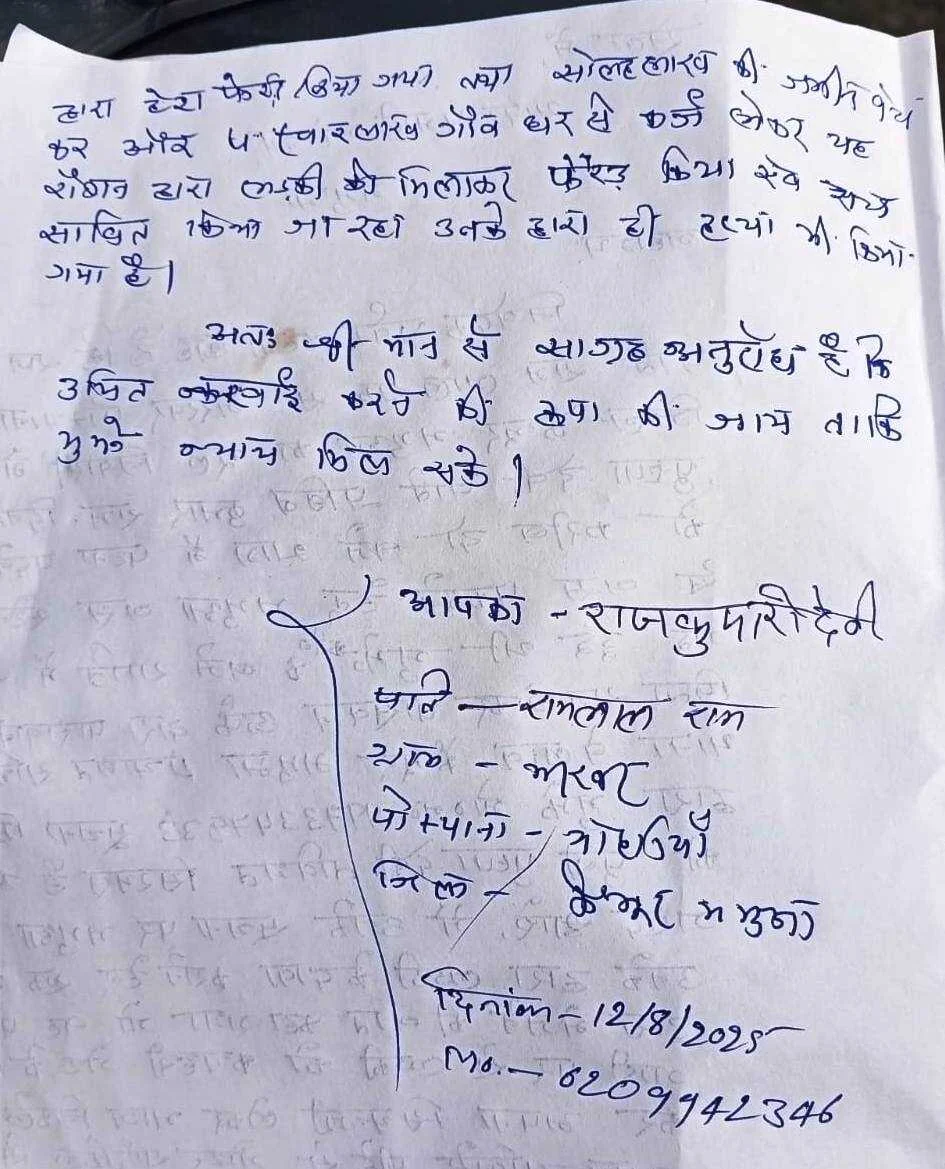 द्वारा हेरा फेरी किया गया तथा सोलह लाख की जमीन बेच
कर और 4 चार लाख गाँव घर से कर्ज लेकर यह
रौशन द्वारा लड़की को मिलाकर फ्रॉड किया एवं
साबित किया जा रहा उनके द्वारा ही हत्या भी किया
गया है।
अतः श्री मान से साग्रह अनुरोध है कि
उचित कारवाई करने की कृपा की जाय ताकि
मुझे न्याय मिल सके।
आपका - राजकुमारी देवी
पति - रामलाल राम
ग्राम -
पो + थाना - मोहनियाँ
जिला - कैमूर भभुआ
दिनांक - 12/8/2025
Mo. - 6209942346